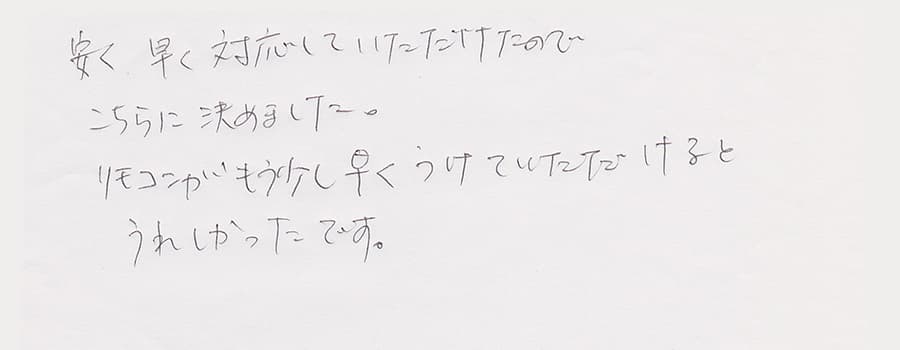 安く 早く 対応していただけたので
こちらに 決めました。
リモコンがもう少し早くうけていただけると
うれしかったです。